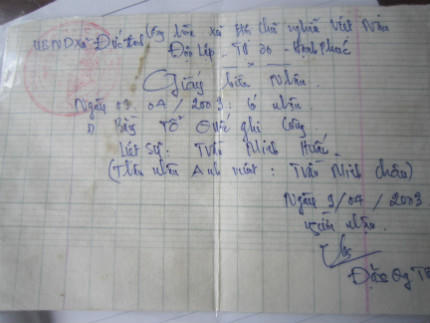 UBND xã Đức Lĩnh Cộng hòa xã hội chủ nghĩa Việt Nam
Độc lập - Tự do - Hạnh phúc
Giấy biên nhận
Ngày 09 / 04 / 2003: có nhận
1) Bằng Tổ Quốc ghi công
Liệt Sỹ: Trần Minh
(Thân nhân Anh : Trần Minh Châu)
Ngày 9/04/2003
nhận